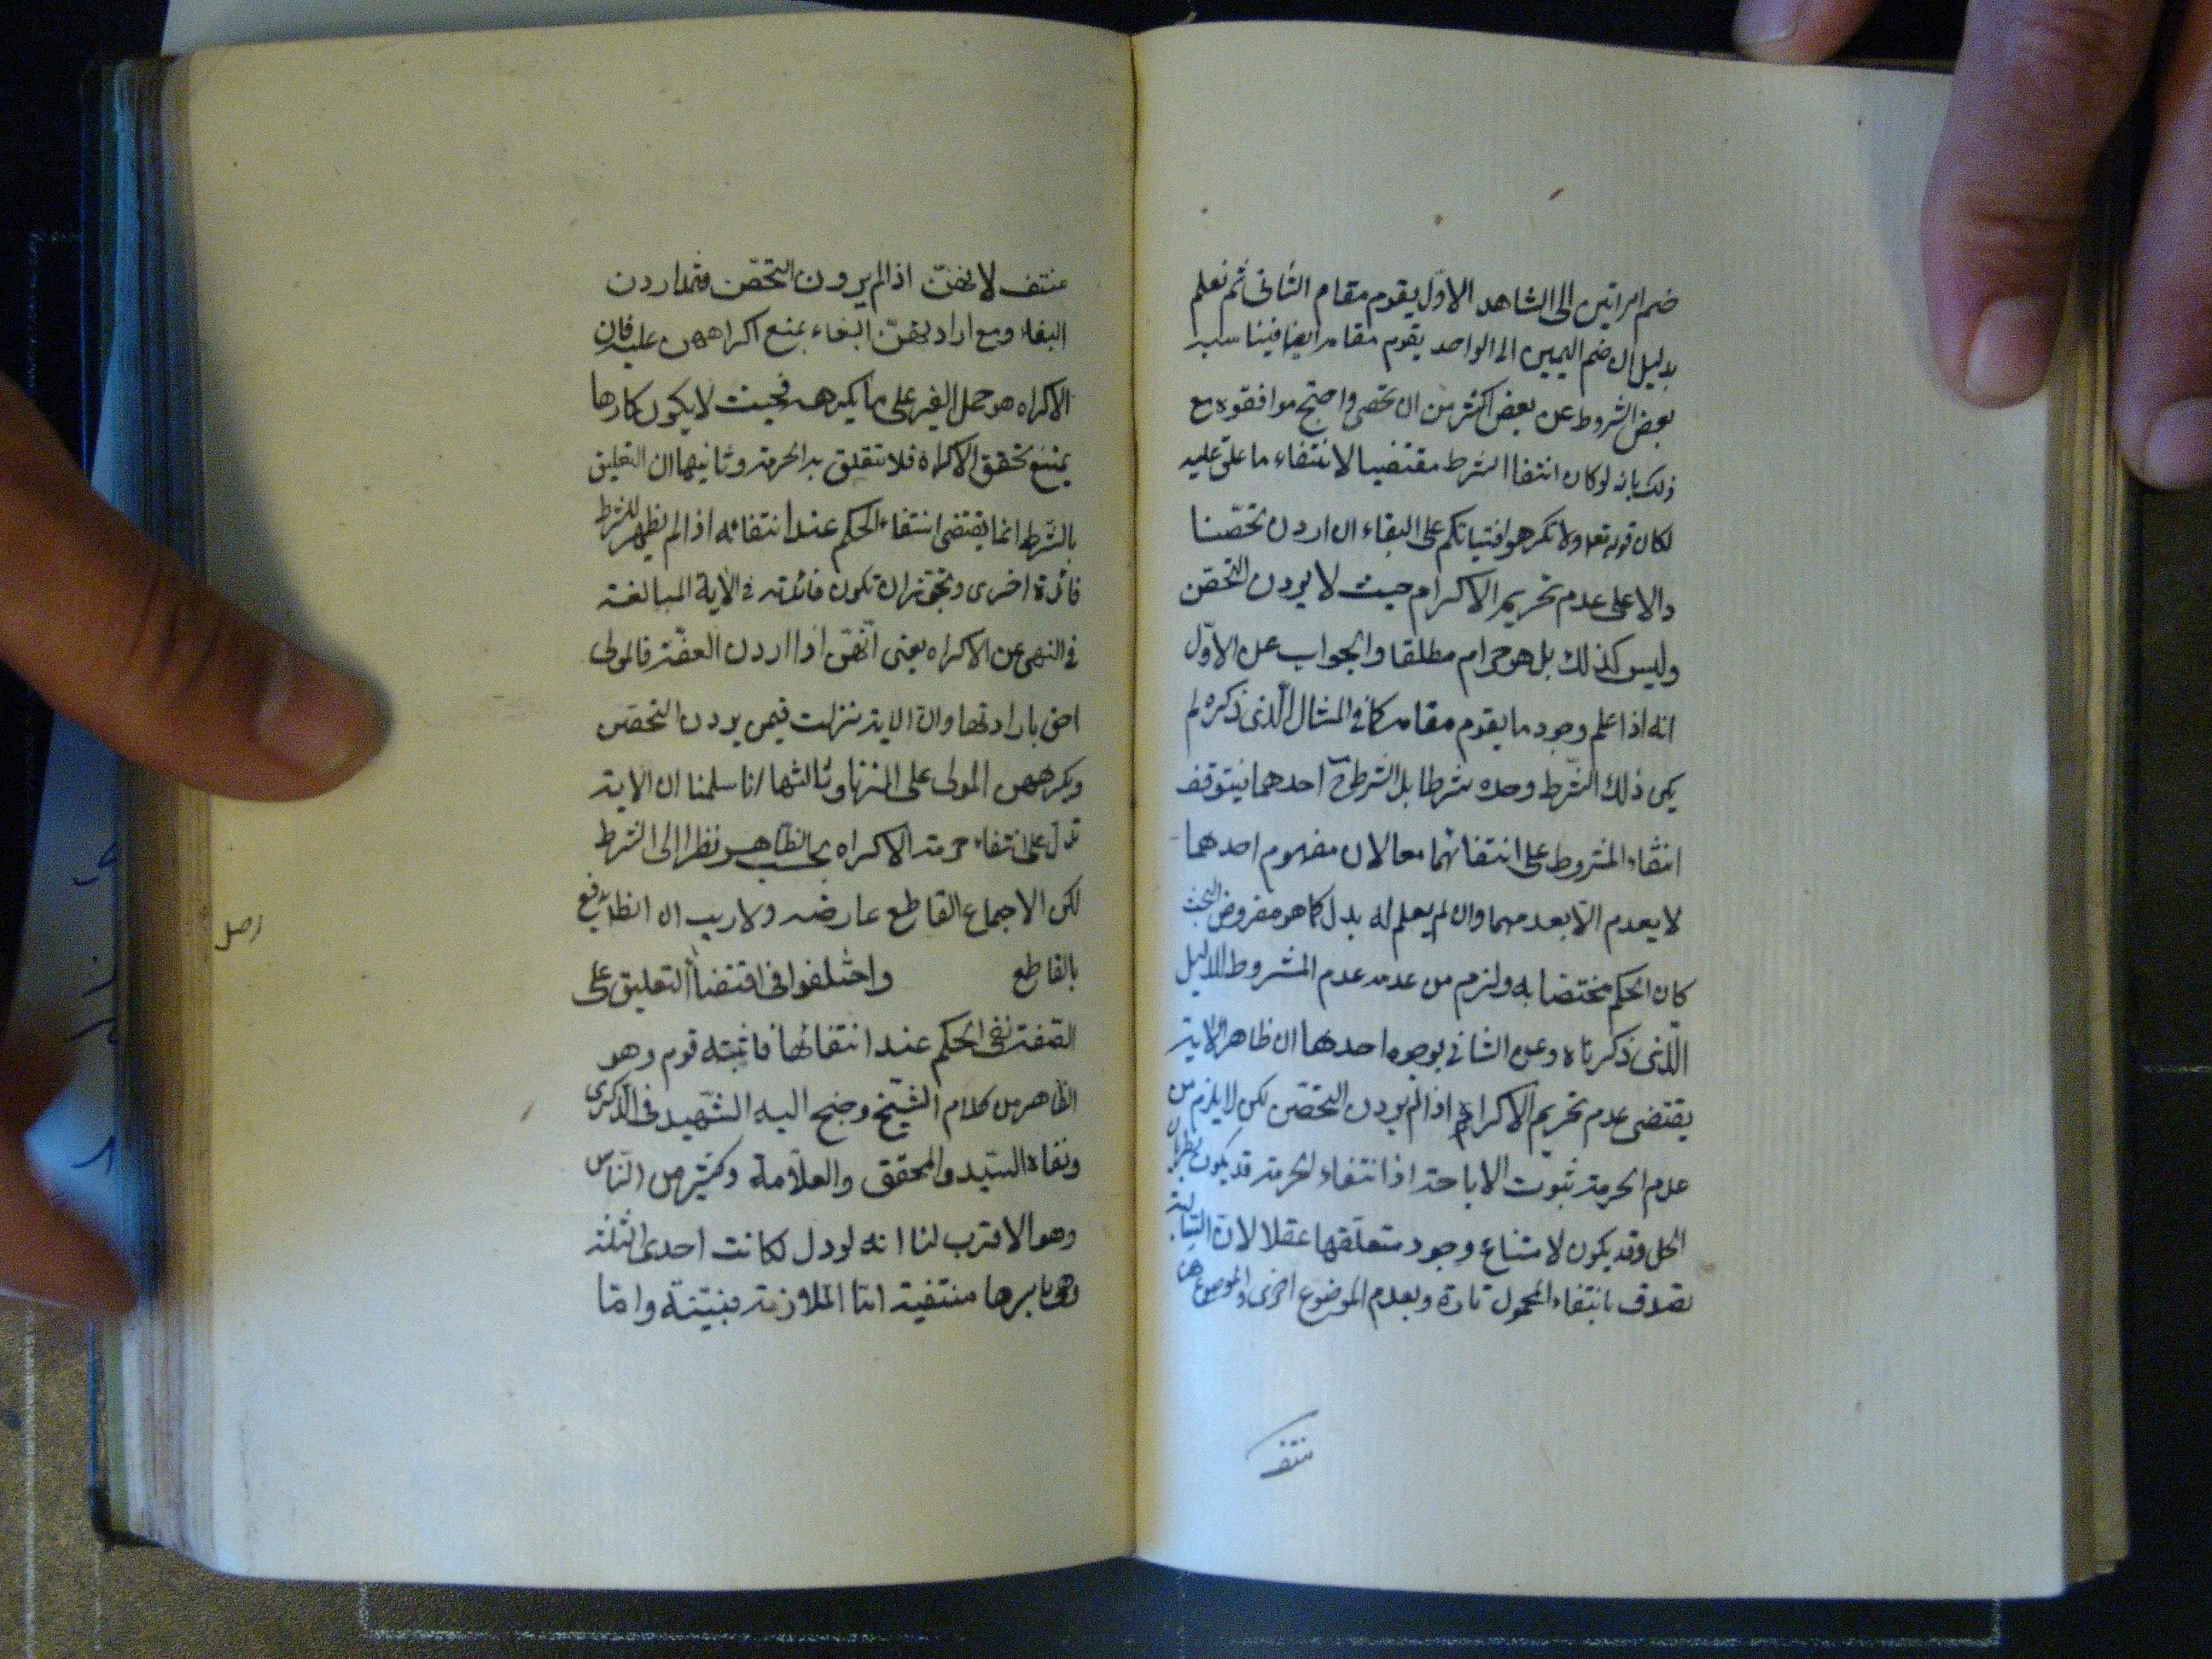 ضم امراتين الى الشاهد الاول يقوم مقام الثانى ثم نعلم
بدليل ان ضم اليمين الى الواحد يقوم مقامه ايضا فينا سبه
بعض الشروط عن بعض اكثر من ان تحصى واحتج موافقوه مع
ذلك بانه لو كان انتفا الشرط مقتضيا لانتفاء ما علق عليه
لكان قوله تعه ولا تكرهوا فتياتكم على البغاء ان اردن تحصّنا
دالا على عدم تحريم الاكرام حيث لا يردن التحصّن
وليس كذلك بل هو حرام مطلقا والجواب عن الاوّل
انه اذا علم وجود ما يقوم مقامه كما فى المثال الّذى ذكره لم
يكن ذلك الشّرط وحده شرطا بل الشرط ح احدهما فيتوقف
انتفاء المشروط على انتفائهما معا لان مفهوم احدهما
لا يعدم الّا بعدمهما وان لم يعلم له بدل كما هو مفروض البحث
كان الحكم مختصا به ولزم من عدمه عدم المشروط للدليل
الّذى ذكرناه وعن الثانى بوجوه احدها ان ظاهر الاية
يقتضى عدم تحريم الاكراه اذا لم يردن التحصّن لكن لا يلزم من
عدم الحرمة ثبوت الاباحة اذ انتفاء الحرمة قد يكون بطريان
الحل وقد يكون لامتناع وجود متعلّقها عقلا لان السّالبة
تصدق بانتفاء المحمول تارة وبعدم الموضوع اخرى والموضوع هن
منتف
منتف لانهنّ اذا لم يردن التحصّن فقد اردن
البغاء ومع ارادتهنّ البغاء يمنع اكراههن عليه فان
الاكراه هو حمل الغير على ما يكرهه فحيث لا يكون كارها
يمتنع تحقق الاكراه فلا تتعلّق به الحرمة وثانيها ان التعليق
بالشرط انما يقتضى انتفاء الحكم عند انتفائه اذا لم يظهر للشرط
فائدة اخرى ويجوز ان تكون فائدته فى الاية المبالغة
فى النهى عن الاكراه يعنى انّهنّ اذا اردن العفّة فالمولى
احق بارادتها وان الاية نزلت فيمن يردن التحصّن
ويكرههن المولى على الزنا وثالثها انا سلمنا ان الاية
تدلّ على انتفاء حرمة الاكراه بحسب الظّاهر نظرا الى الشرط
لكن الاجماع القاطع عارضه ولا ريب ان الظا يدفع
اصل
بالقاطع واختلفوا فى اقتضاء التعليق على
الصّفة نفى الحكم عند انتفائها فاثبته قوم وهو
الظّاهر من كلام الشّيخ وجنح اليه الشّهيد فى الذّكرى
ونفاه السّيد والمحقق والعلّامة وكثير من النّاس
وهو الاقرب لنا انه لو دل لكانت احدى الثلث
وهى باسرها منتفية امّا الملازمة فبيّنة وامّا